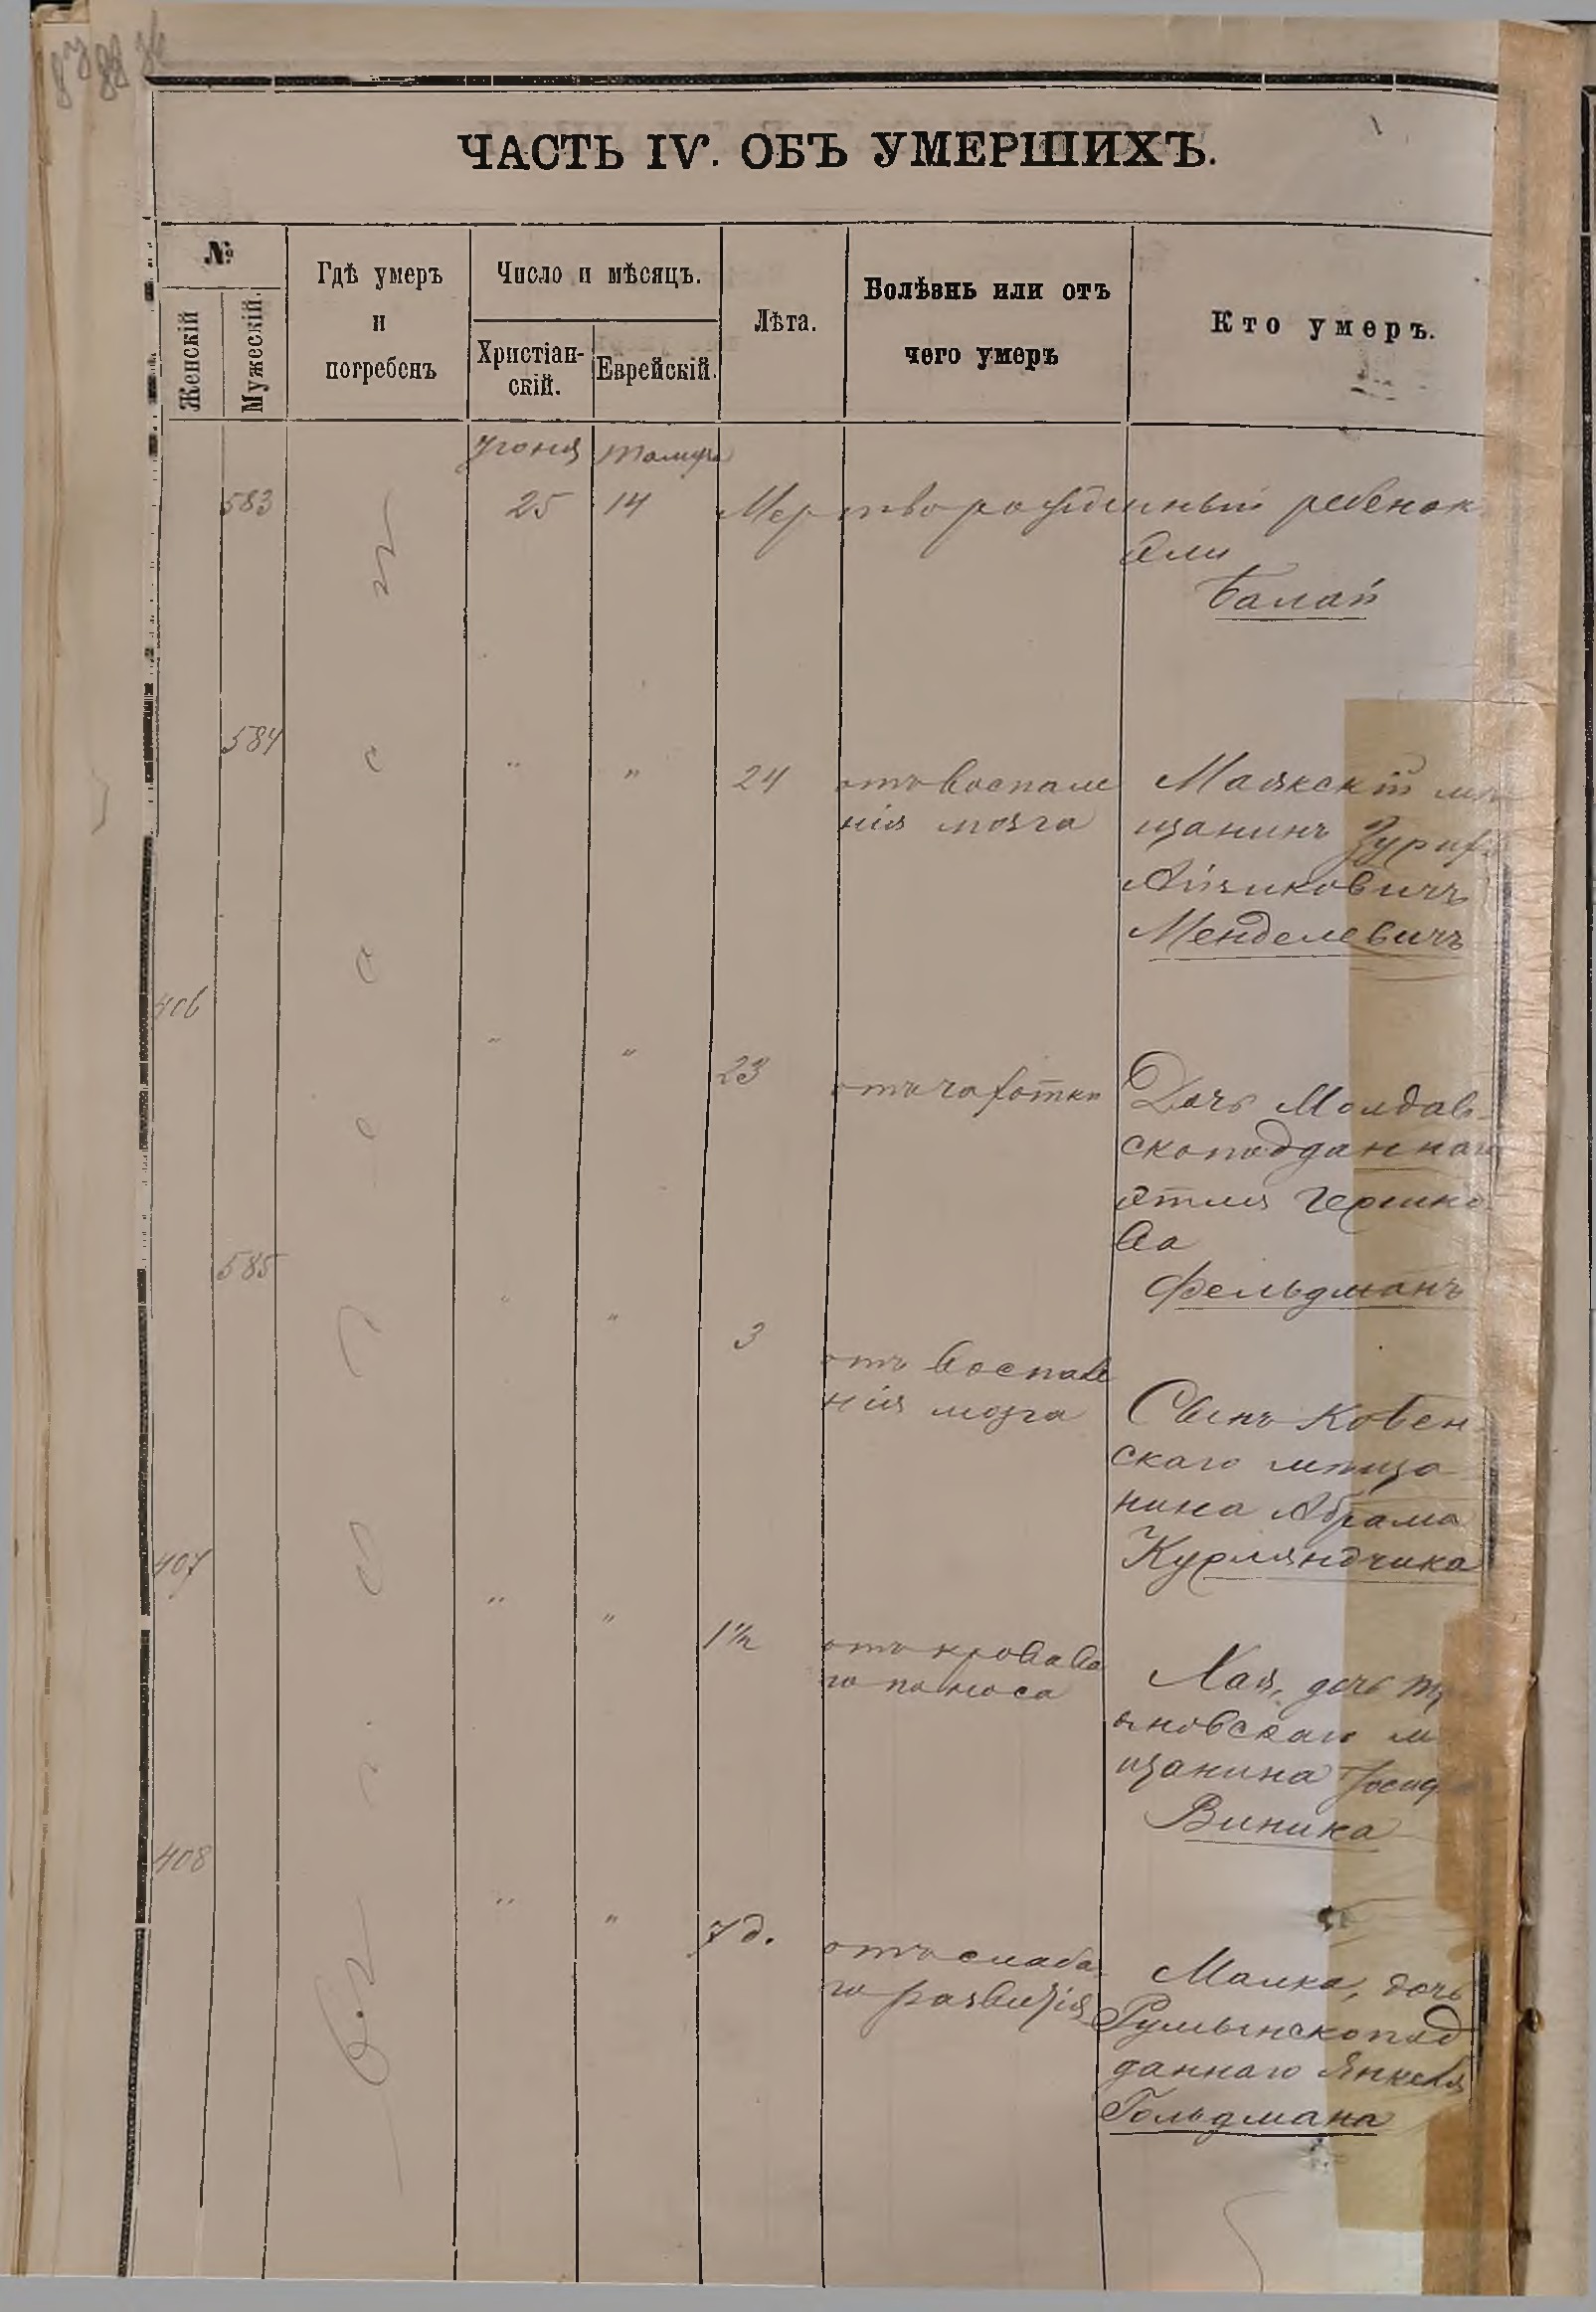 ЧАСТЬ IV. ОБЪ УМЕРШИХЪ.
№
Женскій
Мужескій.
Гдѣ умеръ
и
погребенъ
Число и мѣсяцъ.
Христіан-
скій.
Еврейскій.
Лѣта.
Болѣзнь или отъ
чего умеръ
Кто умеръ.
583
25 14 Мертворожденный ребенок
Балай
584
" " 24
отъ воспале
нія мозга
Маякскій
щанинъ
Айзиковичъ
Менделевичъ
406
" " 23
отъ чахотки
Дочь Молдав-
скоподданнаго
Этля Гершко
ва
Фельдманъ
585
" " 3
отъ воспале
нія мозга
Сынъ Ковен-
скаго мѣща
нина Абрама
Курляндчика
407
" " 1½
отъ кровава
го поноса
Хая, дочь
ановскаго м
щанина Іосиф
Виника
408
" " 7 д.
отъ слаба
го развитія
Малка, дочь
Румынскопод
даннаго Янкеля
Гольдмана